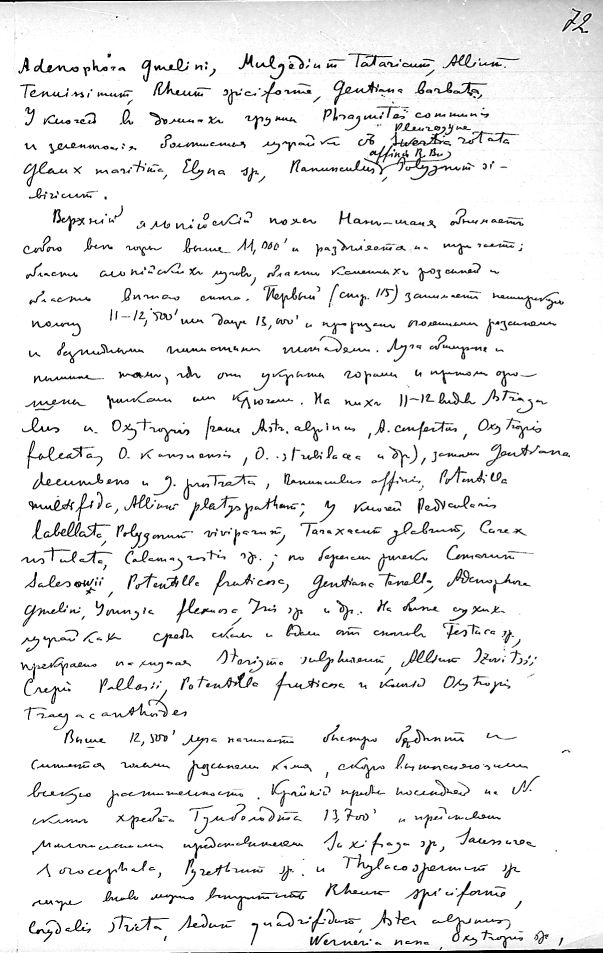 72
Adenophora Gmelini, Mulgedium Tataricum, Allium
Tenuissimum, Rheum spiciforme, Gentiana barbata,
У ключей в долинах группы Phragmites communis
Pleurogyne
и Растительная лужайка съ Swertia rotata
affinis R. Br.
Glaux maritima, Elyna sp., Ranunculus, Polygonum si-
biricum.
Верхній альпійскій поясъ Нань-шаня обнимаетъ
собою все горы выше 11,000' и раздѣляется на три части;
область альпійскихъ луговъ, область каменныхъ розсыпей и
область вѣчнаго снѣга. Первый (стр. 115) занимаетъ неширокую
полосу 11–12,500' или даже 13,000' и прорѣзана розсыпями
и площадями. Луга обширнее и
пышнее тамъ, где они укрыты горами и притомъ оро-
шены речками или ключами. На нихъ 11–12 видовъ Astraga
lus и Oxytropis (Astr. alpinus, A. confertus, Oxytropis
falcata, O. kansuensis, O. strobilacea и др.), затемъ Gentiana
decumbens и g. prostrata, Ranunculus affinis, Potentilla
multifida, Allium platyspathum; у ключей Pedicularis
labellata, Polygonum viviparum, Taraxacum glabrum, Carex
ustulata, Calamagrostis sp.; по берегам речекъ Comarum
Salesowii, Potentilla fruticosa, Gentiana tenella, Adenophora
Gmelini, Youngia flexuosa, Iris sp. и др. На более сухихъ
лужайкахъ среди скалъ и вдали отъ Festuca sp.,
прекрасно пахнущая Sterigma sulphureum, Allium Szovitsii,
Crepis Pallasii, Potentilla fruticosa и Oxytropis
Tragacanthoides
Выше 12,500' луга начинаютъ быстро бѣднеть и
сменяются голыми розсыпями камня, скоро вытесняющими
всякую растительность. Крайній пределъ последней на N.
склоне хребта Гумбольдта 13,700' и представленъ
представителями Saxifraga sp., Saussurea
sorocephala, Pyrethrum sp. и Thylacospermum sp
ниже вновь можно встретить Rheum spiciforme,
Corydalis stricta, Sedum quadrifidum, Aster alpinus,
Werneria nana, Oxytropis sp.,